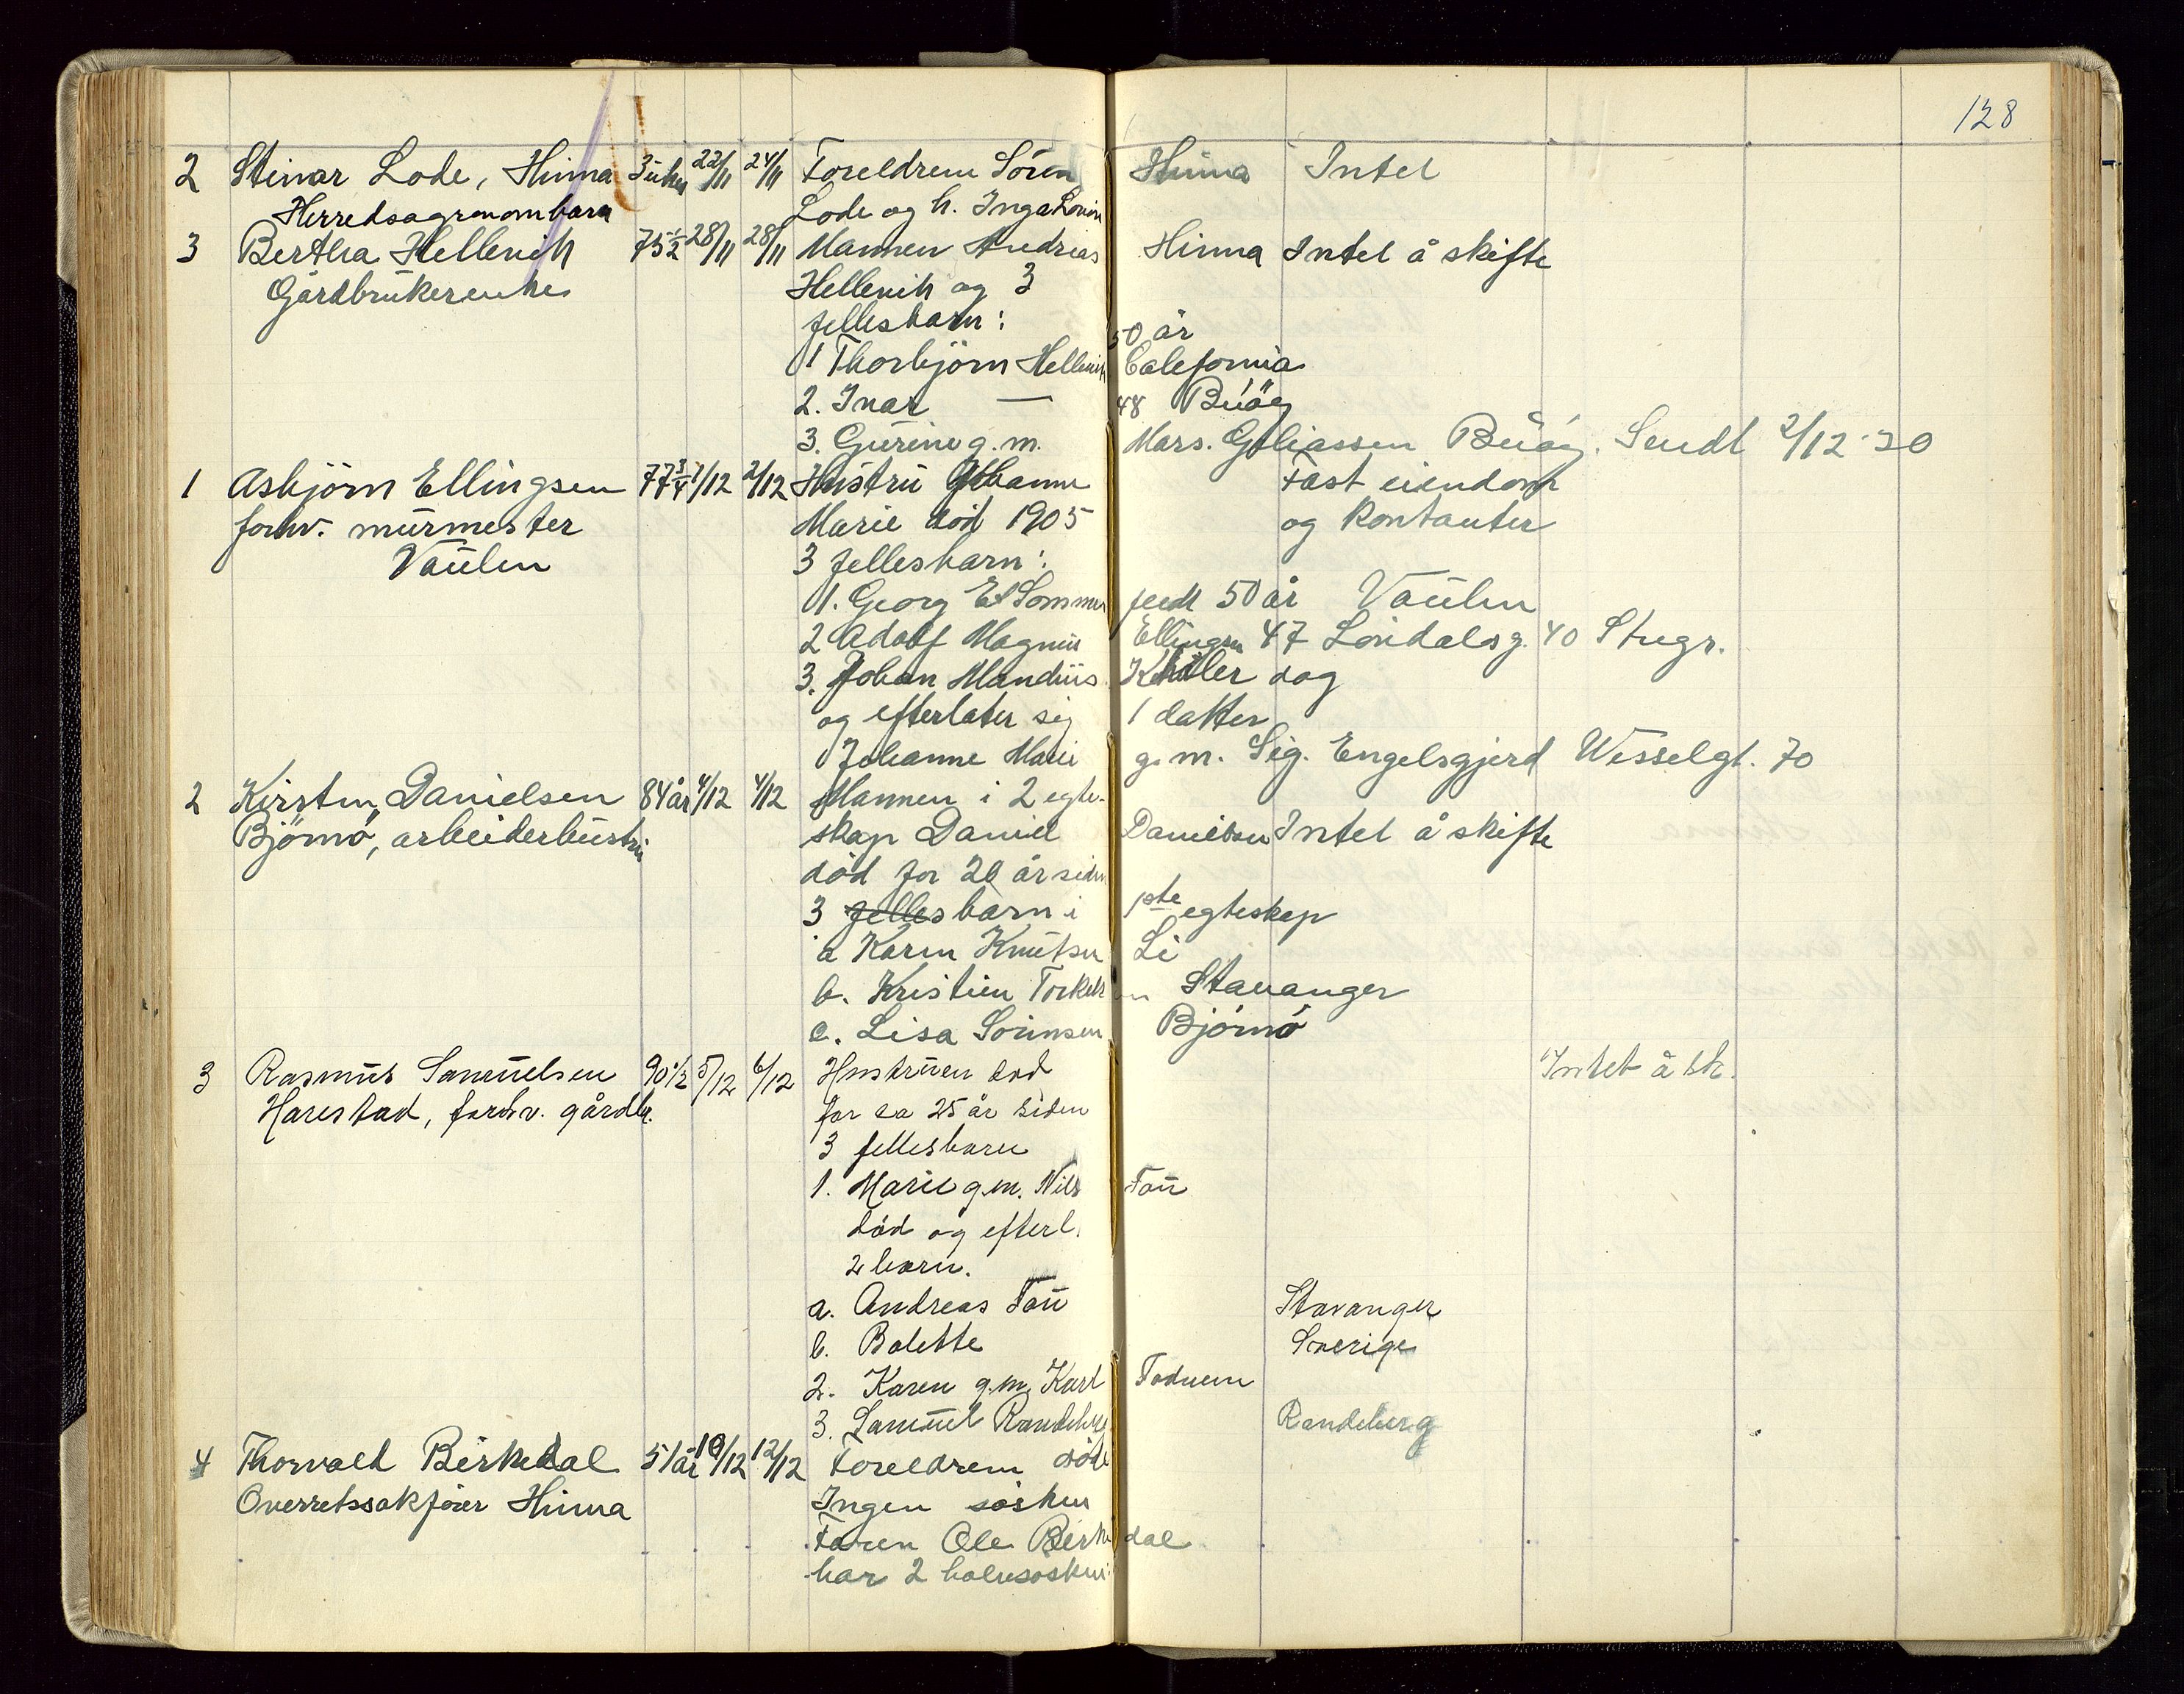 128
2 Steinar Lode, Hinna 3 uker 22/11 24/11 Foreldrene Sören Hinna Intel
Herredsagronombarn Lode og h. Inga Lovise
3 Bertha Hellevik 75 1/2 28/11 28/11 Mannen Andreas Hinna Intel å skifte
Gårdbrukerenke Hellevik og 3
fellesbarn: 50 år
1 Thorbjörn Hellevik California
2. Inar — 48 Buöy
3. Gurine g. m. Mars. Goliassen Buöy. Sendt 2/12-30
1 Asbjörn Ellingsen 77 3/4 1/12 2/12 Hustru Johanne Fast eiendom
forhv. murmester Marie död 1905 og kontanter
Vaulen 3 fellesbarn:
1. Georg E. Sommer födt 50 år Vaulen
2 Adolf Magnus Ellingsen 47 Töndalsg. 40 Stvgr.
3. Johan Mandius Köhler dog
og efterlater sig 1 datter
Johanne Marie g. m. Sig. Engelsgjerd Wesselgt. 70
2 Kirsten Danielsen 84 år 4/12 4/12 Mannen i 2 egte-
Björnö, arbeiderhustru skap Daniel Danielsen Intel å skifte
död for 20 år siden
3 fellesbarn i 1ste egteskap
a Karen Knutsen Li
b. Kristine Torkelsen Stavanger
c. Lisa Sörensen Björnö
3 Rasmus Samuelsen 90 1/2 5/12 6/12 Hustruen död Intet å sk.
Harestad, forhv. gårdbr. for ca 25 år siden
3 fellesbarn
1. Marie g.m. Nils Tou
död og efterl.
2 barn.
a. Andreas Tou Stavanger
b. Bolette Sverige
2. Karen g.m. Karl Todnem
3. Samuel Randeberg Randeberg
4 Thorvald Birkedal 51 år 10/12 12/12 Foreldrene döde
Overretssakförer Hinna Ingen sösken
Faren Ole Birkedal
har 2 halvsösken